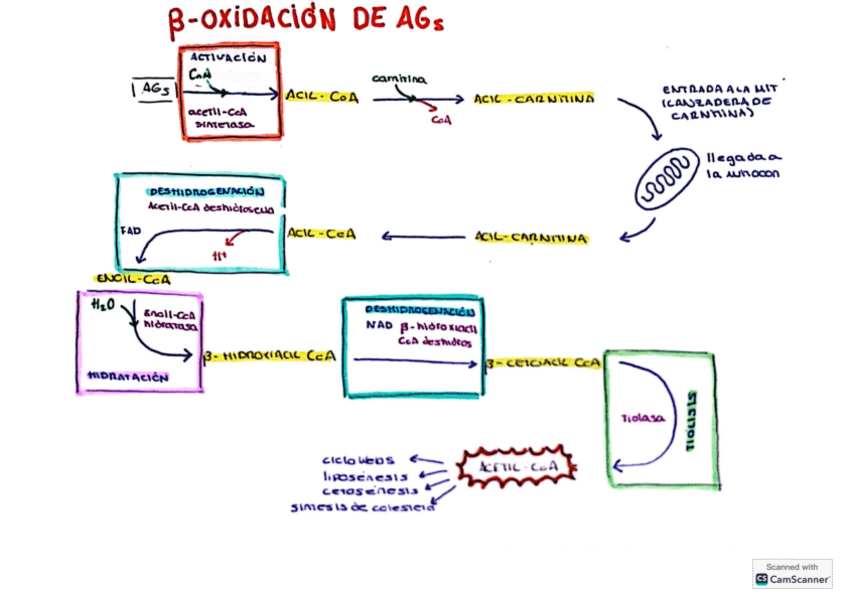 β-OXIDACIÓN DE AGs
ACTIVACIÓN
CoA
AGs
acetil-CoA
sintetasa
ACIL-CoA
carnitina
CoA
ACIL-CARNITINA
ENTRADA A LA MIT
(LANZADERA DE
CARNITINA)
llegada a
la mitocon
DESHIDROGENACIÓN
Acetil-CoA deshidrogena
FAD
H+
ACIL-CoA
ACIL-CARNITINA
ENOIL-CoA
H2O
Enoil-CoA
hidratasa
HIDRATACIÓN
β-HIDROXIACIL CoA
DESHIDROGENACIÓN
NAD β-hidroxiacil
CoA deshidros
β-CETOACIL CoA
Tiolasa
TIOLISIS
ACETIL-CoA
ciclo KREBS
lipogénesis
cetogénesis
síntesis de colesterol
Scanned with
CS CamScanner